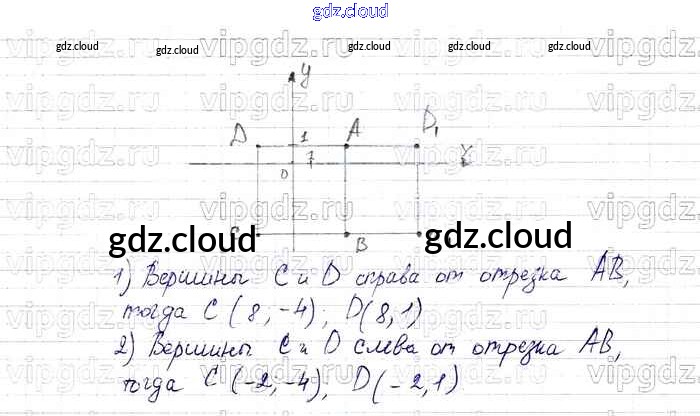 gdz.cloud
gdz.cloud gdz.cloud gdz.cloud gdz.cloud gdz.cloud gdz.cloud
vipgdz.ru vipgdz.ru vipgdz.ru vipgdz.ru
y
D 1 A D₁
0 1 X
C B
gdz.cloud gdz.cloud
1) Вершины C и D справа от отрезка AB,
тогда C (8,-4); D(8,1)
2) Вершины C и D слева от отрезка AB,
тогда C (-2,-4); D(-2,1)